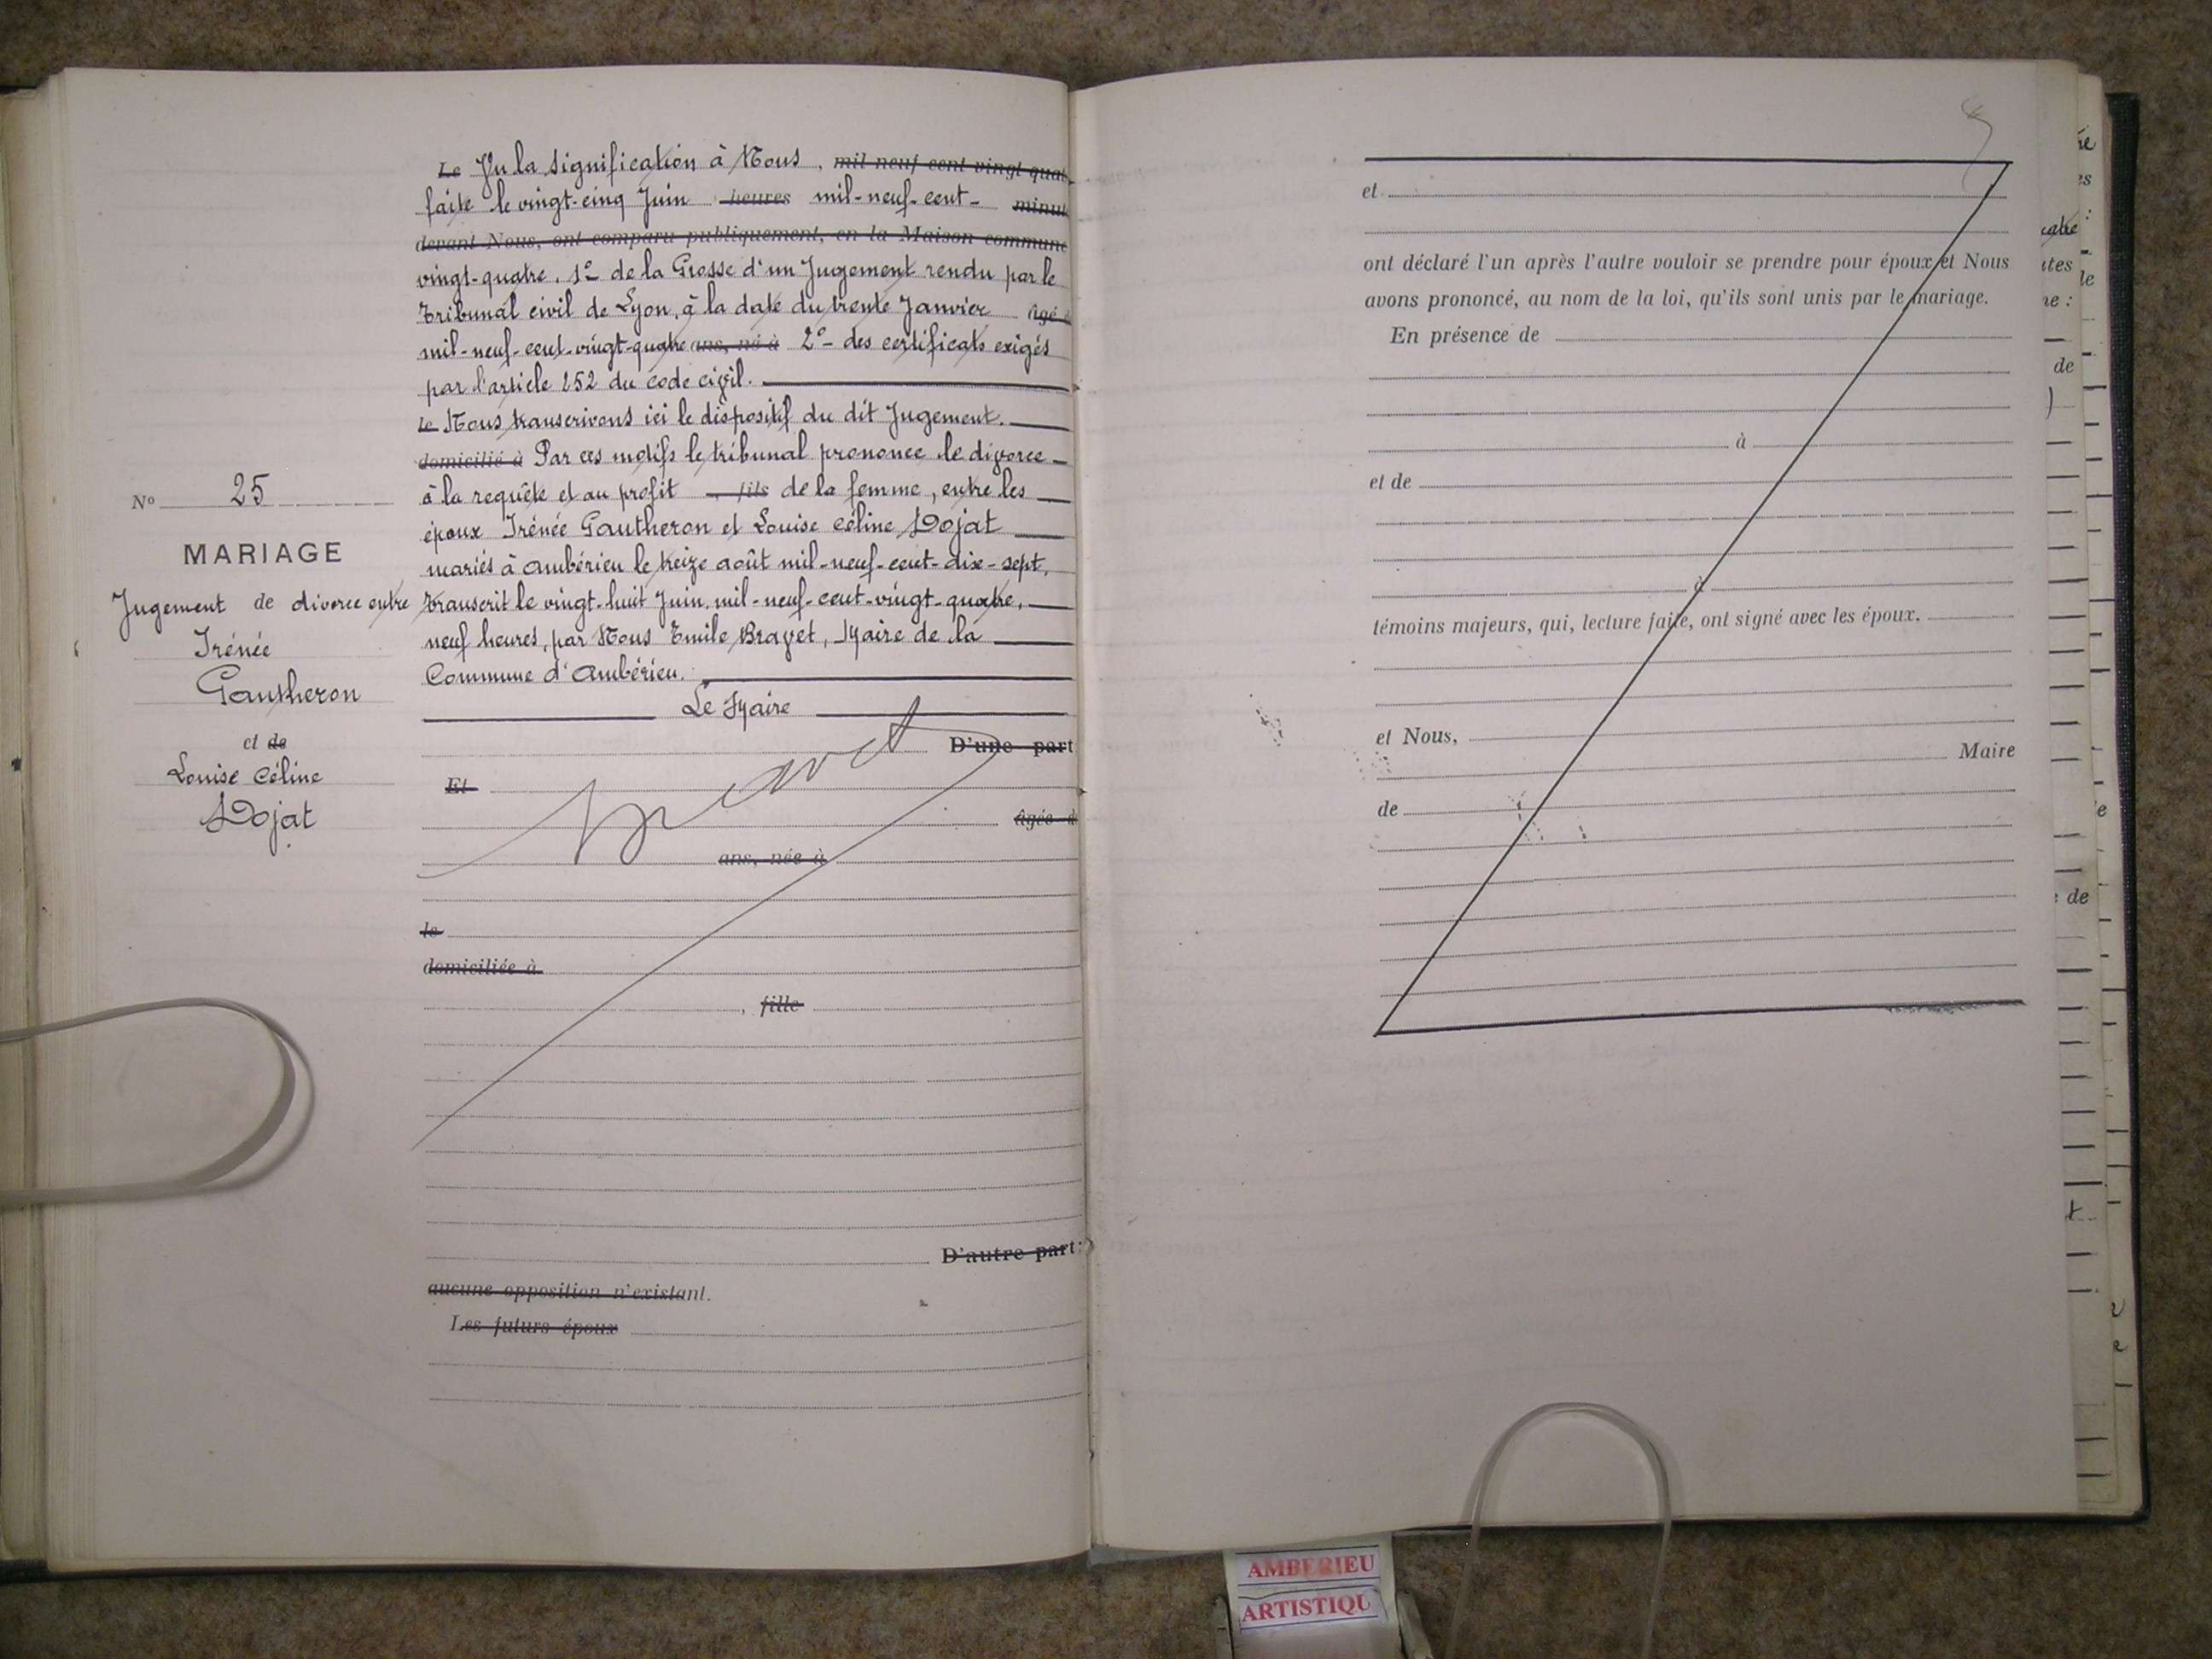 N° 25
MARIAGE
Jugement de divorce entre
Irénée
Gautheron
et de
Louise Céline
Dojat
Le Vu la signification à Nous, mil neuf cent vingt quat
faite le vingt-cinq Juin heures mil-neuf-cent- minut
devant Nous, ont comparu publiquement, en la Maison commune
vingt-quatre, 1º de la Grosse d'un Jugement rendu par le
Tribunal civil de Lyon, à la date du trente Janvier âgé d
mil-neuf-cent-vingt-quatre ans, né à 2º- des certificats exigés
par l'article 252 du code civil.
le Nous transcrivons ici le dispositif du dit Jugement.
domicilié à Par ces motifs le tribunal prononce le divorce
à la requête et au profit , fils de la femme, entre les
époux Irénée Gautheron et Louise Céline Dojat
mariés à Ambérieu le treize août mil-neuf-cent-dix-sept,
transcrit le vingt-huit Juin, mil-neuf-cent-vingt-quatre,
neuf heures, par Nous Emile Bravet, Maire de la
Commune d'Ambérieu.
Le Maire
D'une part
Et
Bravet
âgée d
ans, née à
le
domiciliée à
, fille
D'autre part:
aucune opposition n'existant.
Les futurs époux
et
ont déclaré l'un après l'autre vouloir se prendre pour époux et Nous
avons prononcé, au nom de la loi, qu'ils sont unis par le mariage.
En présence de
à
et de
à
témoins majeurs, qui, lecture faite, ont signé avec les époux.
et Nous,
Maire
de
AMBERIEU
ARTISTIQU